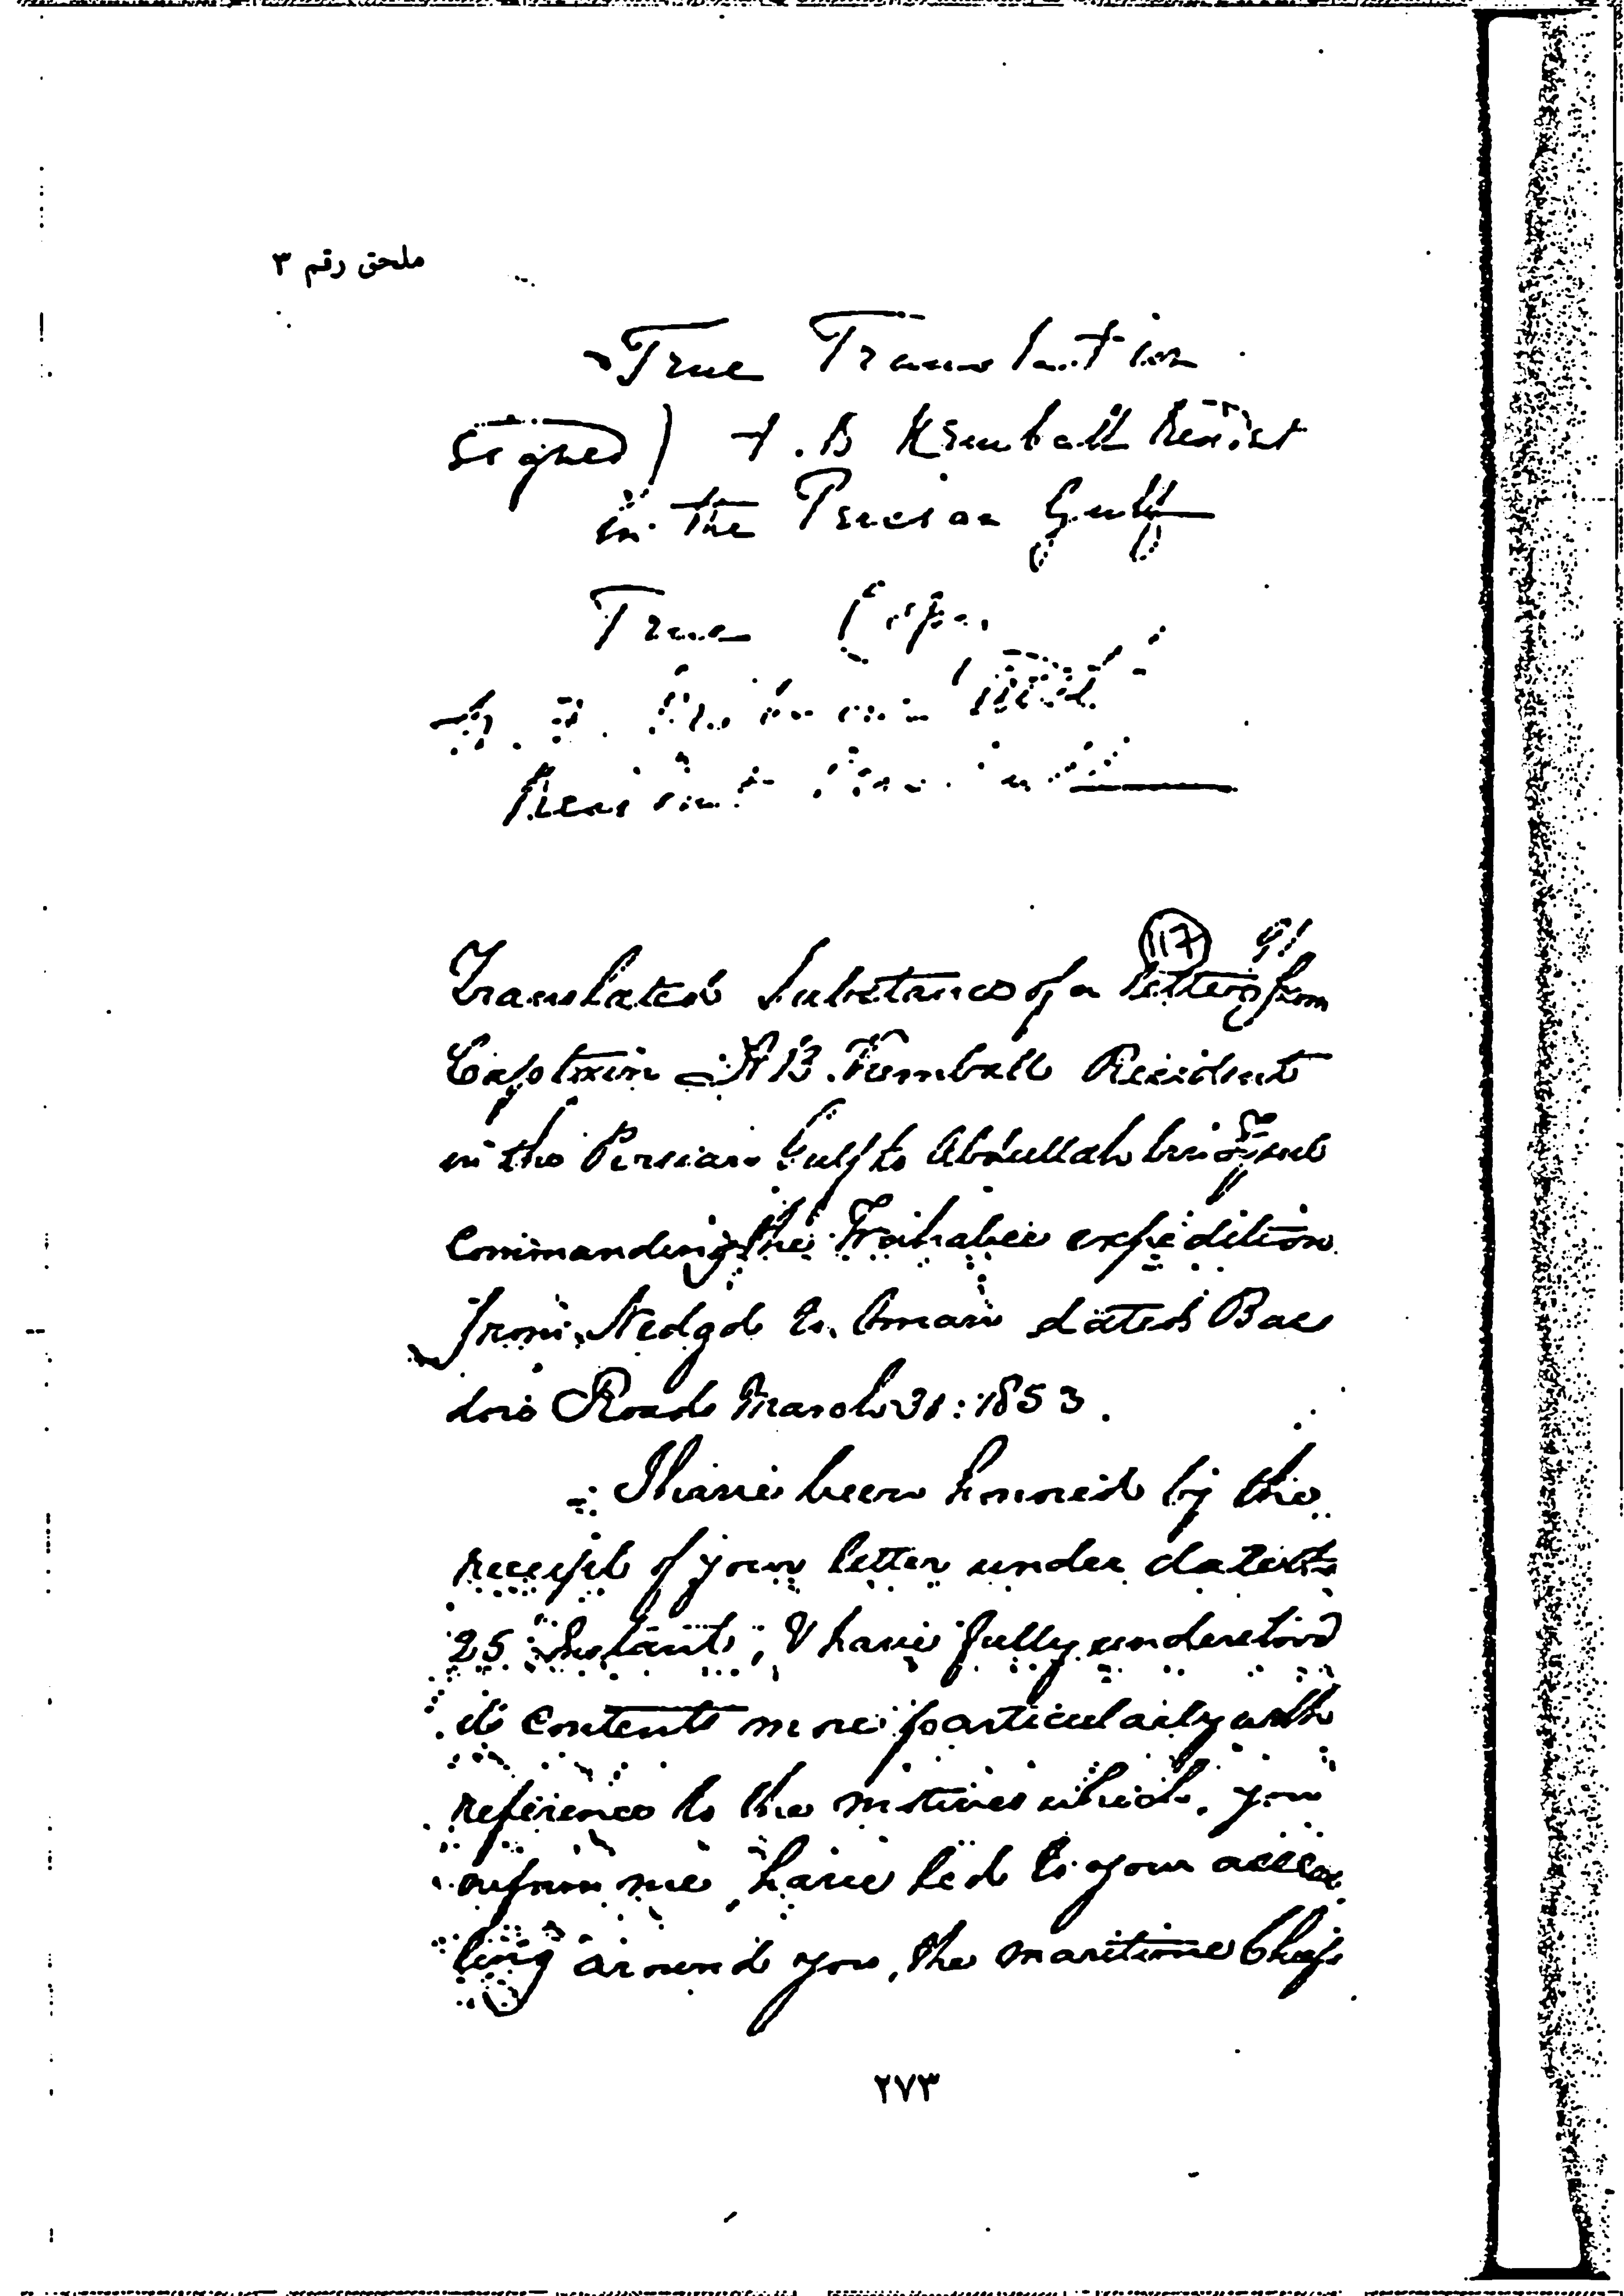 ملحق رقم ٣
True Translation
Signed) A. B Kemball Resist
in the Persian Gulf
True Copy
Resident
117 91
Translated Substance of a letter from
Captain A B. Kemball Resident
in the Persian Gulf to Abdullah bin
Commanding the Wahabee expedition
from Nedgd to Oman dated Bas
dore Roads March 31: 1853.
I have been honored by the
receipt of your letter under date the
25 Instant, I have fully understood
its contents more particularly with
reference to the motives which, you
inform me, have led to your
ling around you, the maritime Chiefs
٢٧٣